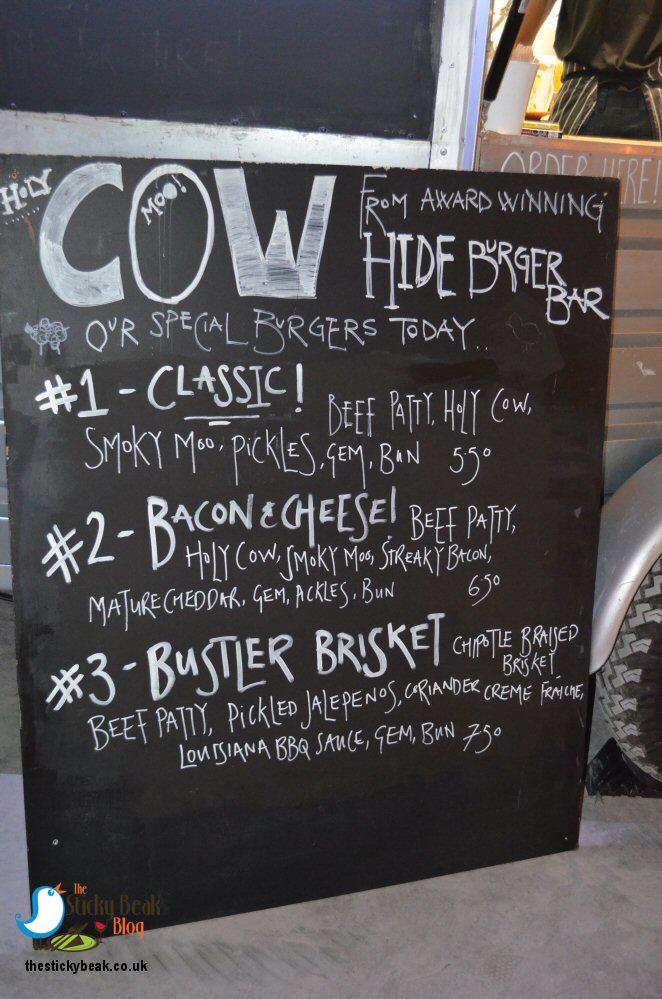 HOLY COW MOO! FROM AWARD WINNING
HIDE BURGER BAR
OUR SPECIAL BURGERS TODAY..
#1 - CLASSIC! BEEF PATTY, HOLY COW,
SMOKY MOO, PICKLES, GEM, BUN 550
#2 - BACON & CHEESE! BEEF PATTY,
HOLY COW, SMOKY MOO, STREAKY BACON,
MATURE CHEDDAR, GEM, ACKLES, BUN 650
#3 - BUSTLER BRISKET CHIPOTLE BRAISED
BRISKET,
BEEF PATTY, PICKLED JALEPENOS, CORIANDER CREME FRAICHE,
LOUISIANA BBQ SAUCE, GEM, BUN 750
ORDER HERE!
The
Sticky Beak
Blog
thestickybeak.co.uk